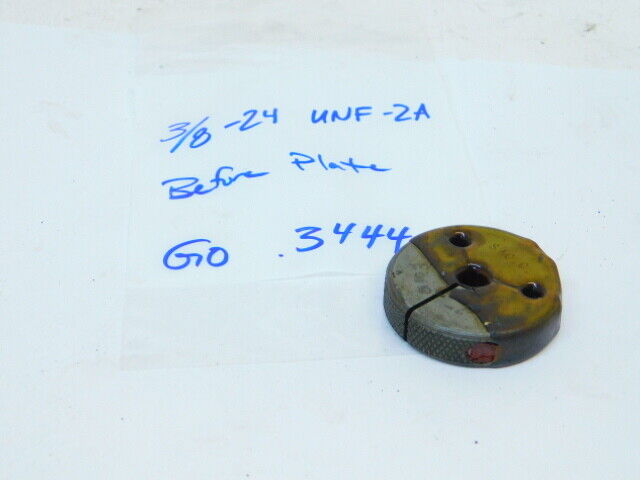 3/8-24 UNF-2A
Before Plate
GO .3444